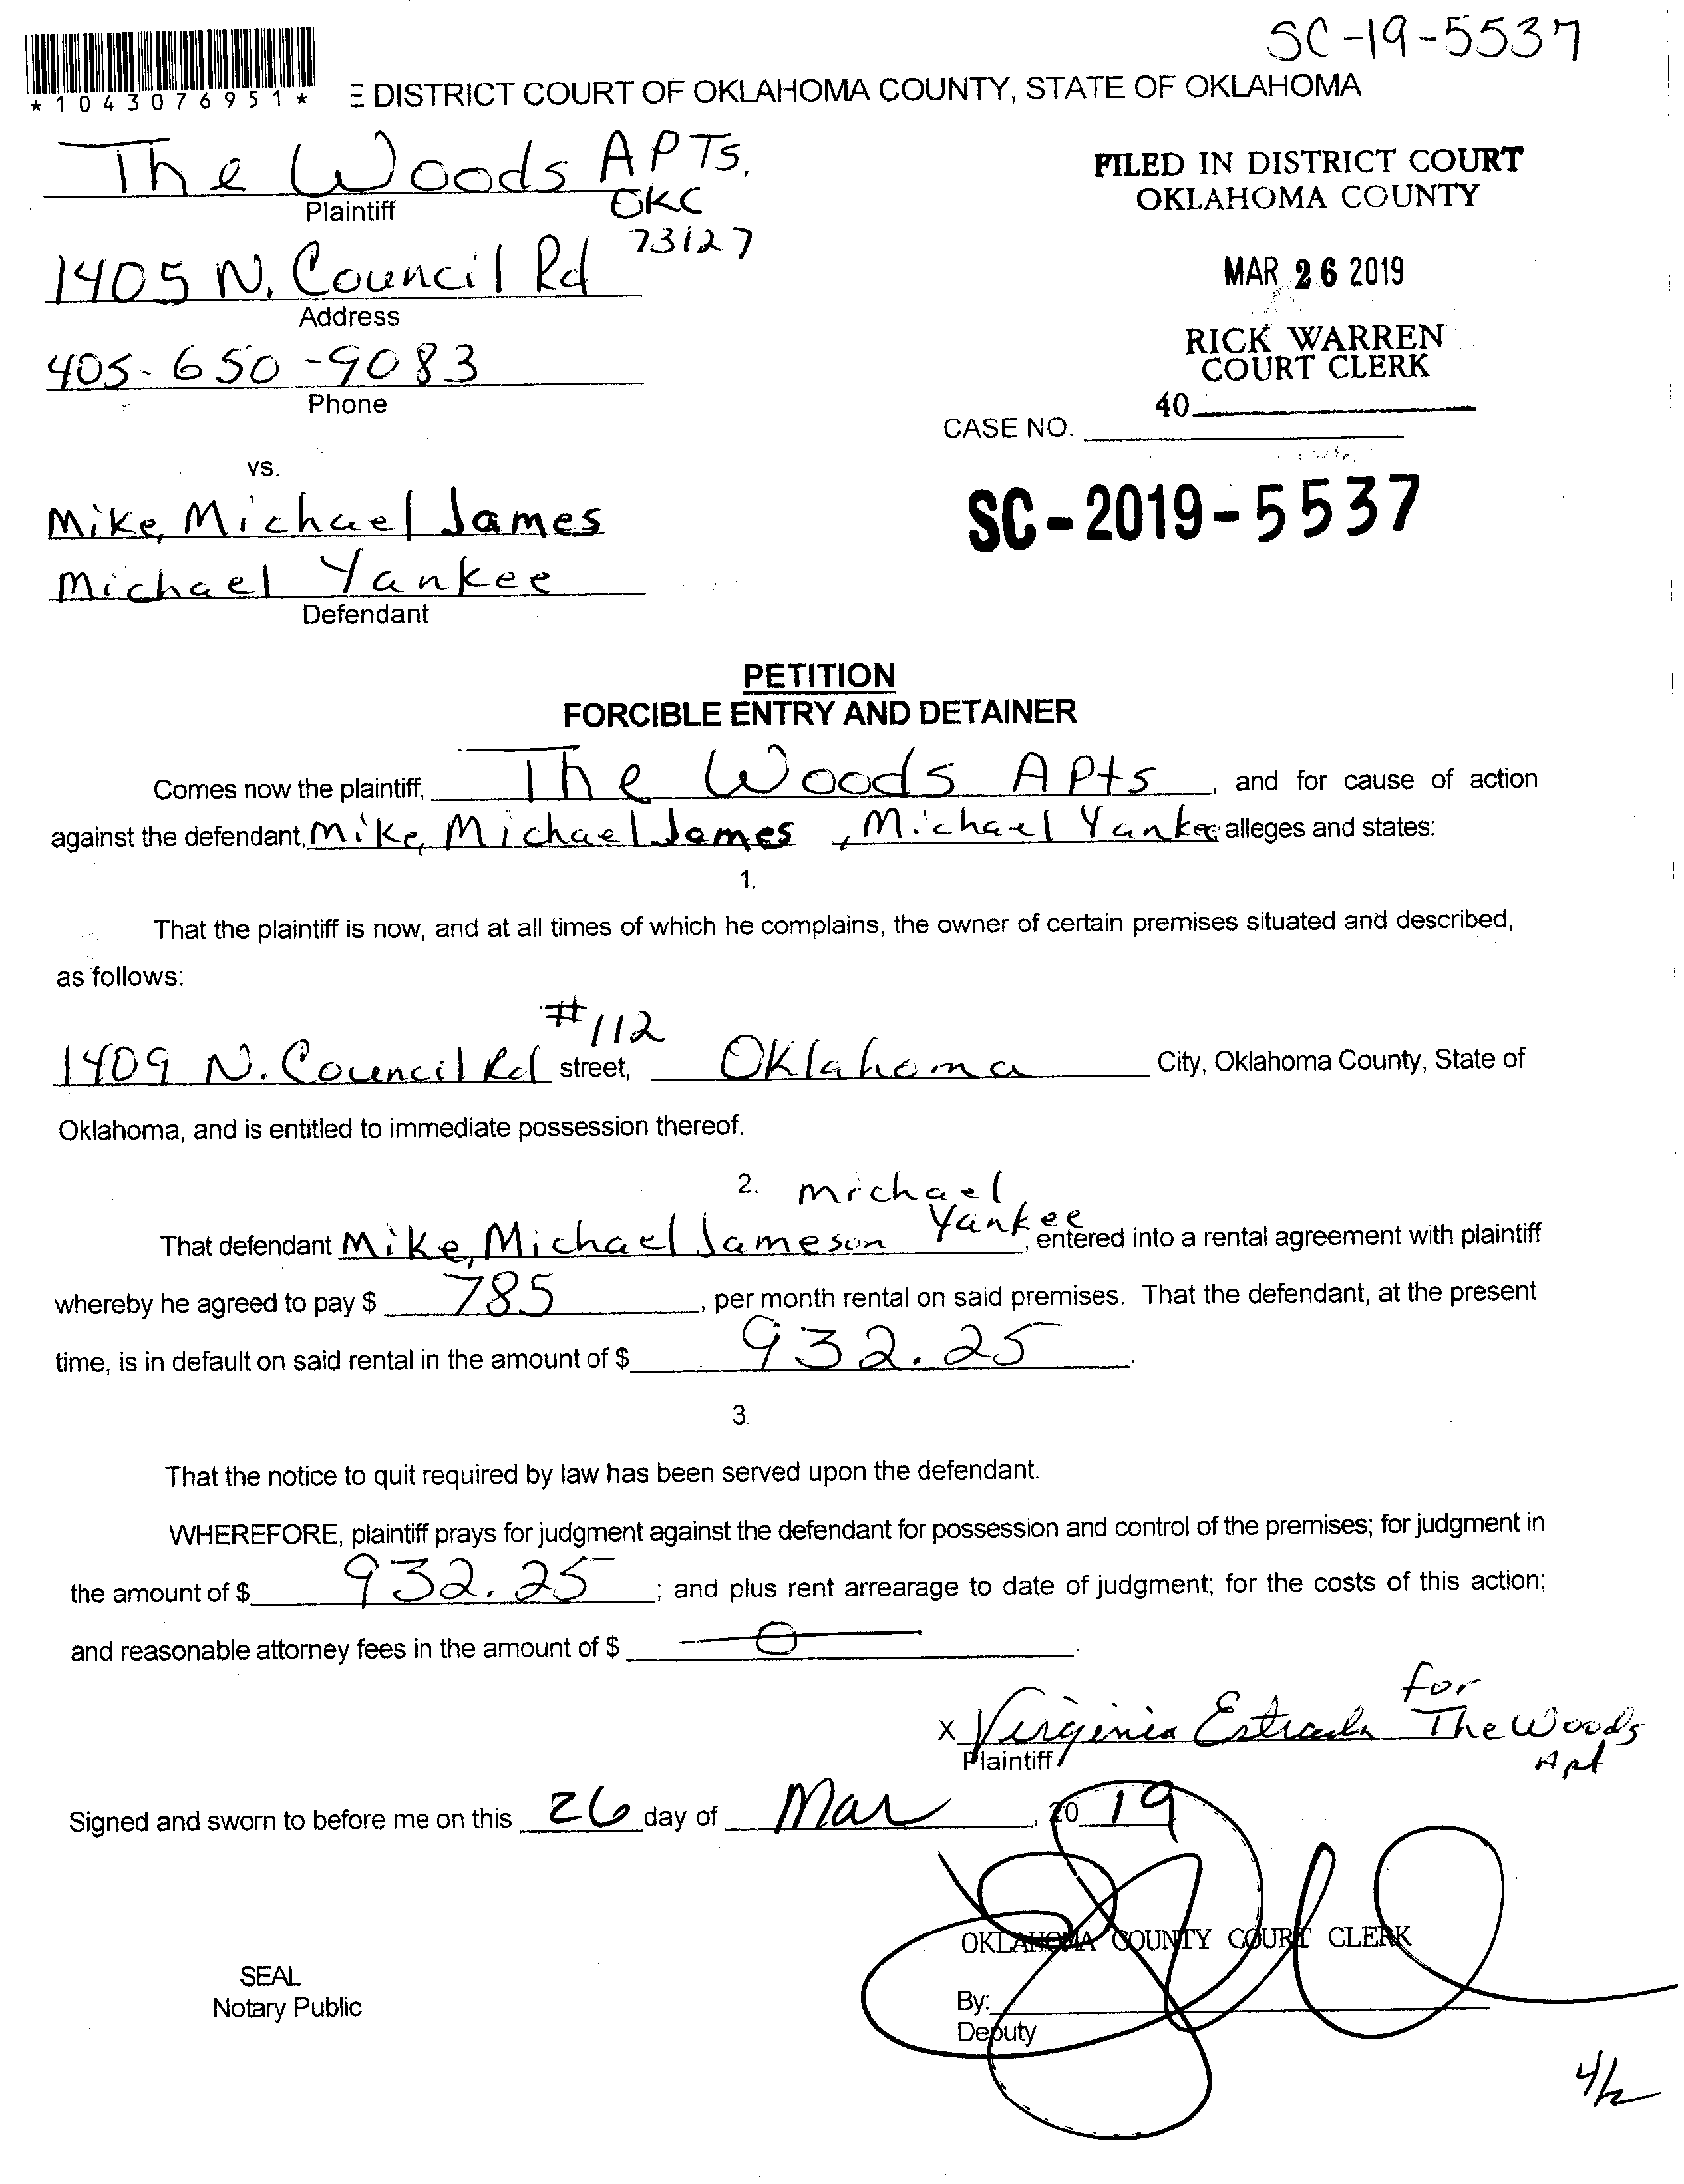 SC-19-5537
*1043076951*
E DISTRICT COURT OF OKLAHOMA COUNTY, STATE OF OKLAHOMA
The Woods APTS.
Plaintiff
OKC
73127
1405 N. Council Rd
Address
405-650-9083
Phone
FILED IN DISTRICT COURT
OKLAHOMA COUNTY
MAR 26 2019
RICK WARREN
COURT CLERK
40
CASE NO.
SC-2019-5537
vs.
Mike, Michael James
Michael Yankee
Defendant
PETITION
FORCIBLE ENTRY AND DETAINER
Comes now the plaintiff, The Woods Apts, and for cause of action
against the defendant, Mike, Michael James, Michael Yankee alleges and states:
1.
That the plaintiff is now, and at all times of which he complains, the owner of certain premises situated and described,
as follows:
#112
1409 N. Council Rd street, Oklahoma City, Oklahoma County, State of
Oklahoma, and is entitled to immediate possession thereof.
2. Michael
That defendant Mike, Michael Jameson Yankee, entered into a rental agreement with plaintiff
whereby he agreed to pay $ 785, per month rental on said premises. That the defendant, at the present
time, is in default on said rental in the amount of $ 932.25.
3.
That the notice to quit required by law has been served upon the defendant.
WHEREFORE, plaintiff prays for judgment against the defendant for possession and control of the premises; for judgment in
the amount of $ 932.25; and plus rent arrearage to date of judgment; for the costs of this action;
and reasonable attorney fees in the amount of $ 0.
x Virginia Estrada for The Woods Apt
Plaintiff
Signed and sworn to before me on this 26 day of Mar, 20 19
OKLAHOMA COUNTY COURT CLERK
SEAL
Notary Public
By:
Deputy
4/2